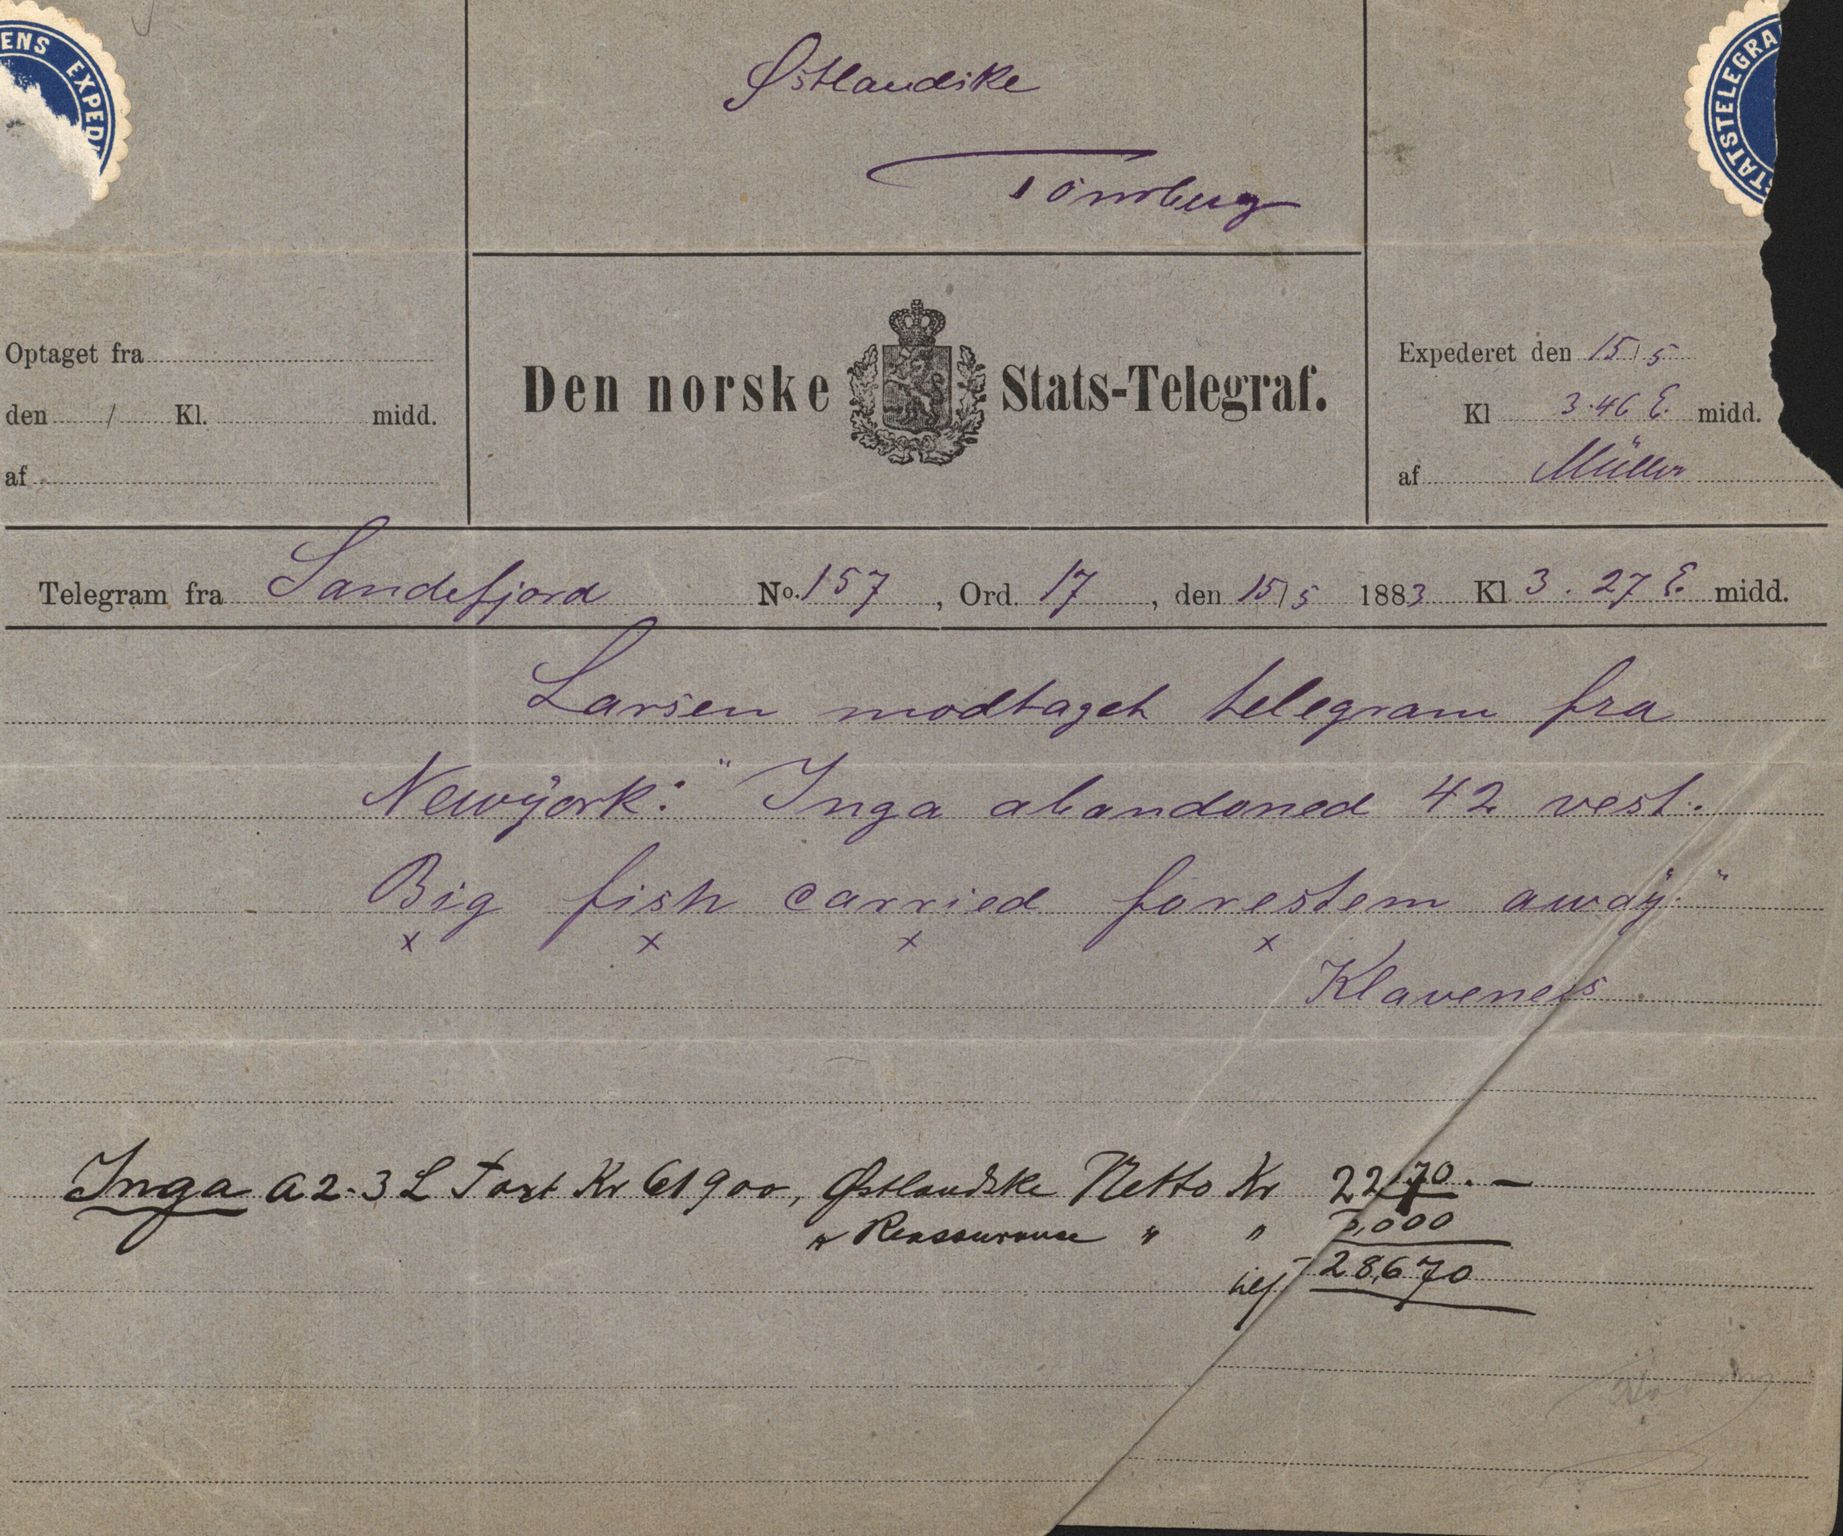 ENS EXPED
STATSTELEGRA
Østlandske
Tönsberg
Optaget fra
den / Kl. midd.
af
Den norske Stats-Telegraf.
Expederet den 15/5
Kl 3.46 E. midd.
af Müller
Telegram fra Sandefjord No. 157, Ord. 17, den 15/5 1883 Kl 3.27 E. midd.
Larsen modtaget telegram fra
Newÿork: " Inga abandoned 42 vest.
Big fish carried forestem awaÿ."
x x x x
Klaveness
Inga A2-3 L Taxt Kr 61900, Østlandske Netto Kr 22,670.-
" Reassurance " " ,000
28,670